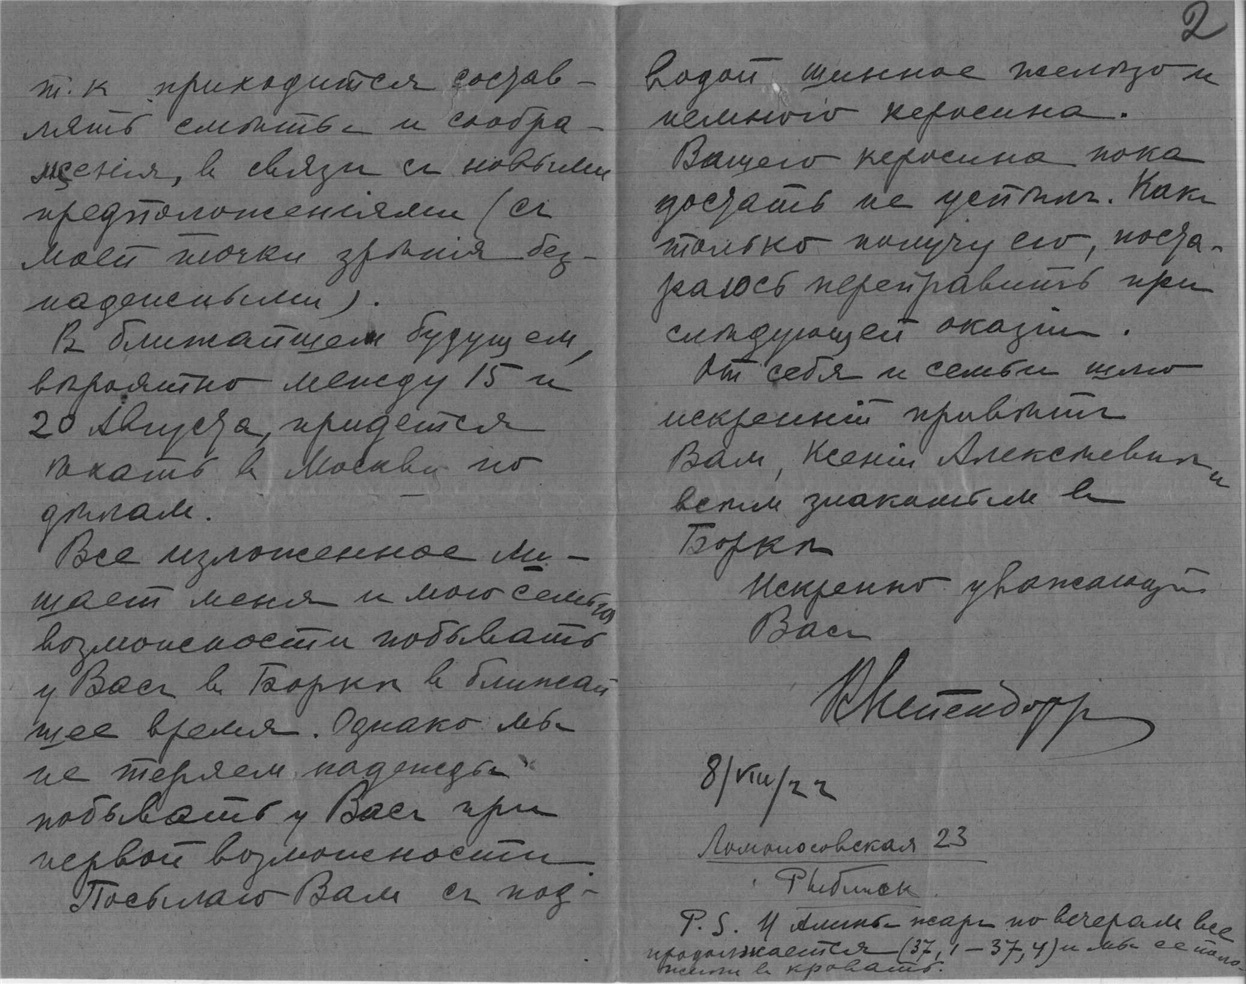 2
т.к. приходится состав-
лять смѣты и сообра-
женія, в связи съ новыми
предположеніями (съ
моей точки зрѣнія без-
надежными).
В ближайшем будущем,
вѣроятно между 15 и
20 Августа, придется
ѣхать в Москву по
дѣлам.
Все изложенное ли-
шает меня и мою семью
возможности побывать
у Васъ в Боркѣ в ближай
шее время. Однако мы
не теряем надежды
побывать у Васъ при
первой возможности.
Посылаю Вам съ под-
водой шинное желѣзо и
немного керосина.
Вашего керосина пока
достать не успѣлъ. Какъ
только получу его, поста-
раюсь переправить при
слѣдующей оказіи.
От себя и семьи шлю
искренній привѣтъ
Вам, Ксеніи Алексѣевнѣ и
всѣм знакомым в
Боркѣ
Искренно уважающій
Васъ
8/VIII/22
Ломоносовская 23
Рыбинск
P.S. У Алины жаръ по вечерам все
продолжается (37,1–37,4) и мы ее поло-
жили в кровать.